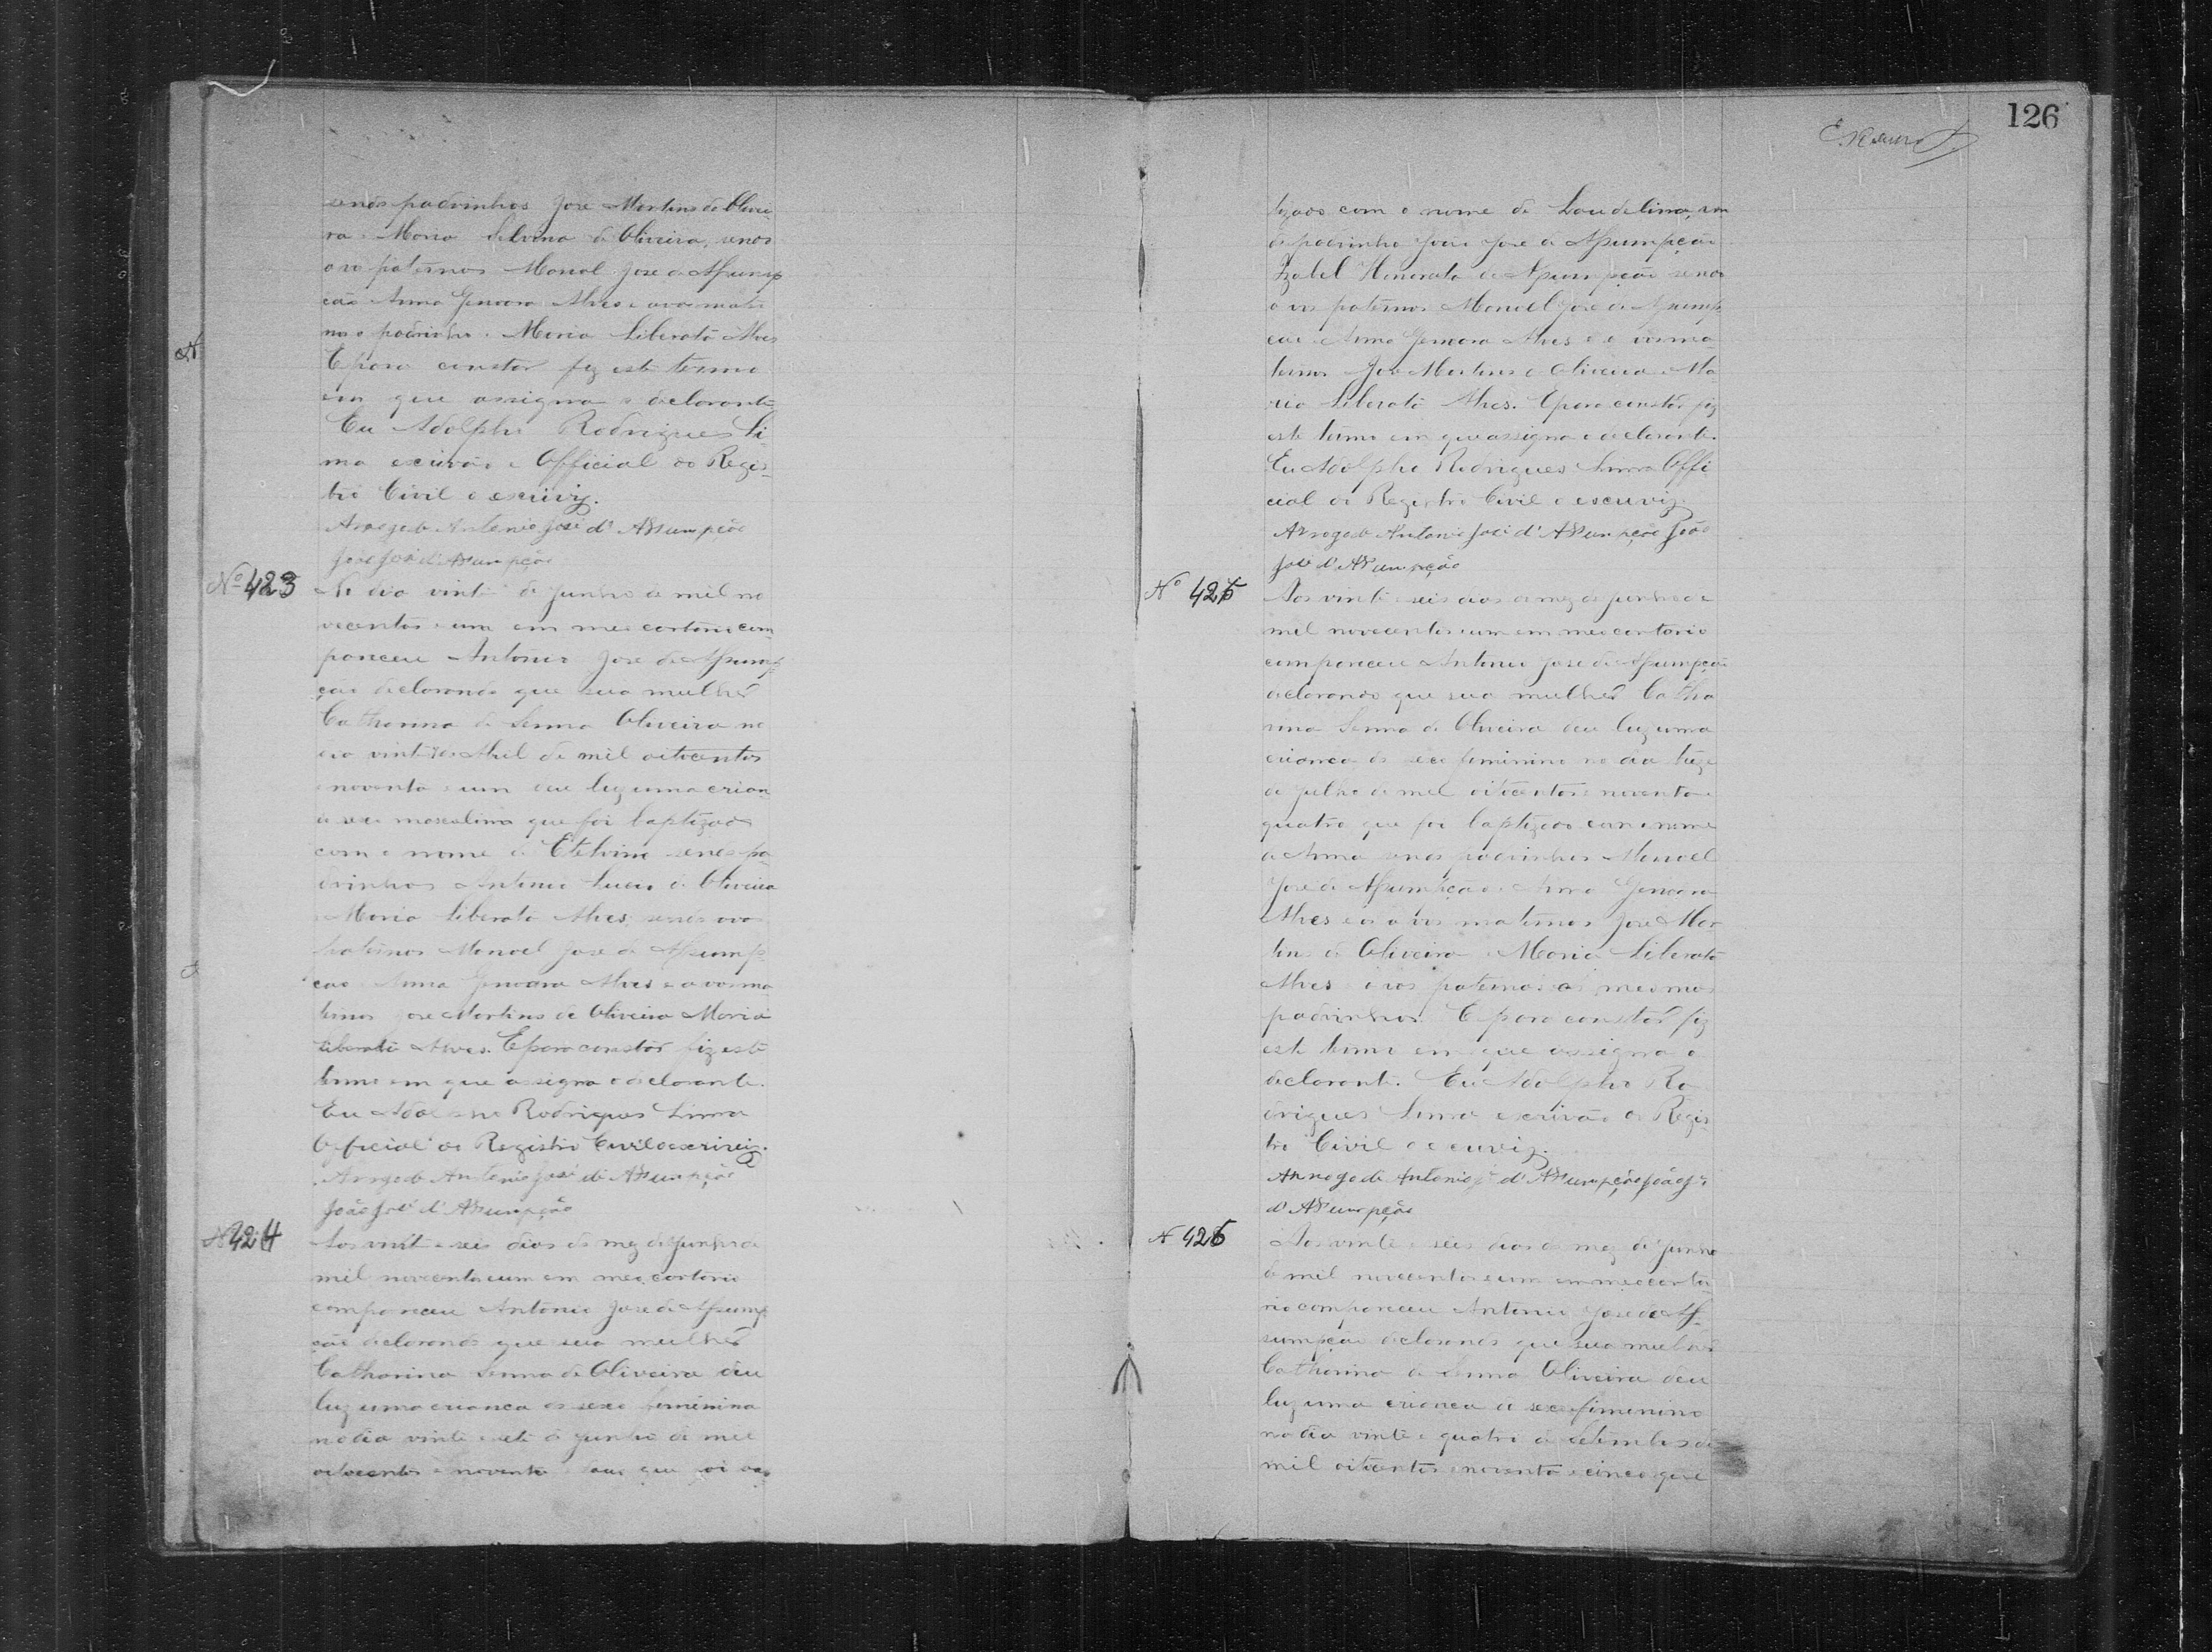 sendo padrinhos Jose Martins de Olivei-
ra Maria Silvina de Oliveira, sendo
avo paternos Manoel Jose de Assump
ção Anna Genoara Alves e avos mater
nos o padrinho. Maria Liberata Alves
E para constar fiz este termo
em que assigna o declarante
Eu Adolpho Rodrigues Li-
ma escrivão e Official do Regis-
tro Civil o escrivy.
Arrogo de Antonio José d'Assumpção
João José d'Assumpção
Nº 423
No dia vinte de Junho de mil no
vecentos e um em meo cartorio com
pareceu Antonio Jose de Assump
ção declarando que sua mulher
Catharina de Senna Oliveira no
dia vinte de Abril de mil oitocentos
e noventa e um deu luz uma crian
de sexo masculino que foi baptizado
com o nome de Etelvino sendo pa
drinhos Antonio Lucio de Oliveira
Maria Liberata Alves sendo avo
paternos Manoel Jose de Assump-
cao Anna Genoara Alves e avos ma
ternos Jose Martins de Oliveira Maria
Liberata Alves. E para constar fiz este
termo em que assigna o declarante.
Eu Adolpho Rodrigues Lima
Official do Registro Civil o escriviz.
Arrogo de Antonio José de Assumpção
João José d'Assumpção
Nº 424
Aos vinte e seis dias do mez de Junho de
mil novecentos e um em meo cartorio
compareceu Antonio Jose de Assump
ção declarando que sua mulher
Catharina Senna de Oliveira deu
luz uma crianca do sexo feminino
no dia vinte e sete de Junho de mil
oitocentos e noventa e dous que foi bap
126
tizado com o nome de Laudelina, sen
do padrinho João Jose de Assumpção
Izabel Honorata de Assumpção sendo
avos paternos Manoel Jose de Assump
cao Anna Genoara Alves e avos ma-
ternos Jose Martins de Oliveira Ma-
ria Liberata Alves. E para constar fiz
este termo em que assigna o declarante.
Eu Adolpho Rodrigues Lima Offi
cial do Registro Civil o escriviz
Arrogo de Antonio José d'Assumpção João
José d'Assumpção
Nº 425
Aos vinte e seis dias do mez de Junho de
mil novecentos e um em meo cartorio
compareceu Antonio Jose de Assumpção
declarando que sua mulher Catha
rina Senna de Oliveira deu luz uma
crianca do sexo feminino no dia treze
de Julho de mil oitocentos e noventa e
quatro que foi baptizado com o nome
de Anna sendo padrinhos Manoel
Jose de Assumpção Anna Genoara
Alves e os avos maternos Jose Mar
tins de Oliveira Maria Liberata
Alves avos paternos os mesmos
padrinhos. E para constar fiz
este termo em que assigna o
declarante. Eu Adolpho Ro
drigues Lima escrivão do Regis-
tro Civil o escriviz.
Arrogo de Antonio Jé d'Assumpção João Jé
d'Assumpção
N 426
Aos vinte e seis dias do mez de Junho
de mil novecentos e um em meo carto
rio compareceu Antonio Jose de As-
sumpção declarando que sua mulher
Catharina de Senna Oliveira deu
luz uma crianca de sexo feminino
no dia vinte e quatro de Setembro de
mil oitocentos e noventa e cinco que